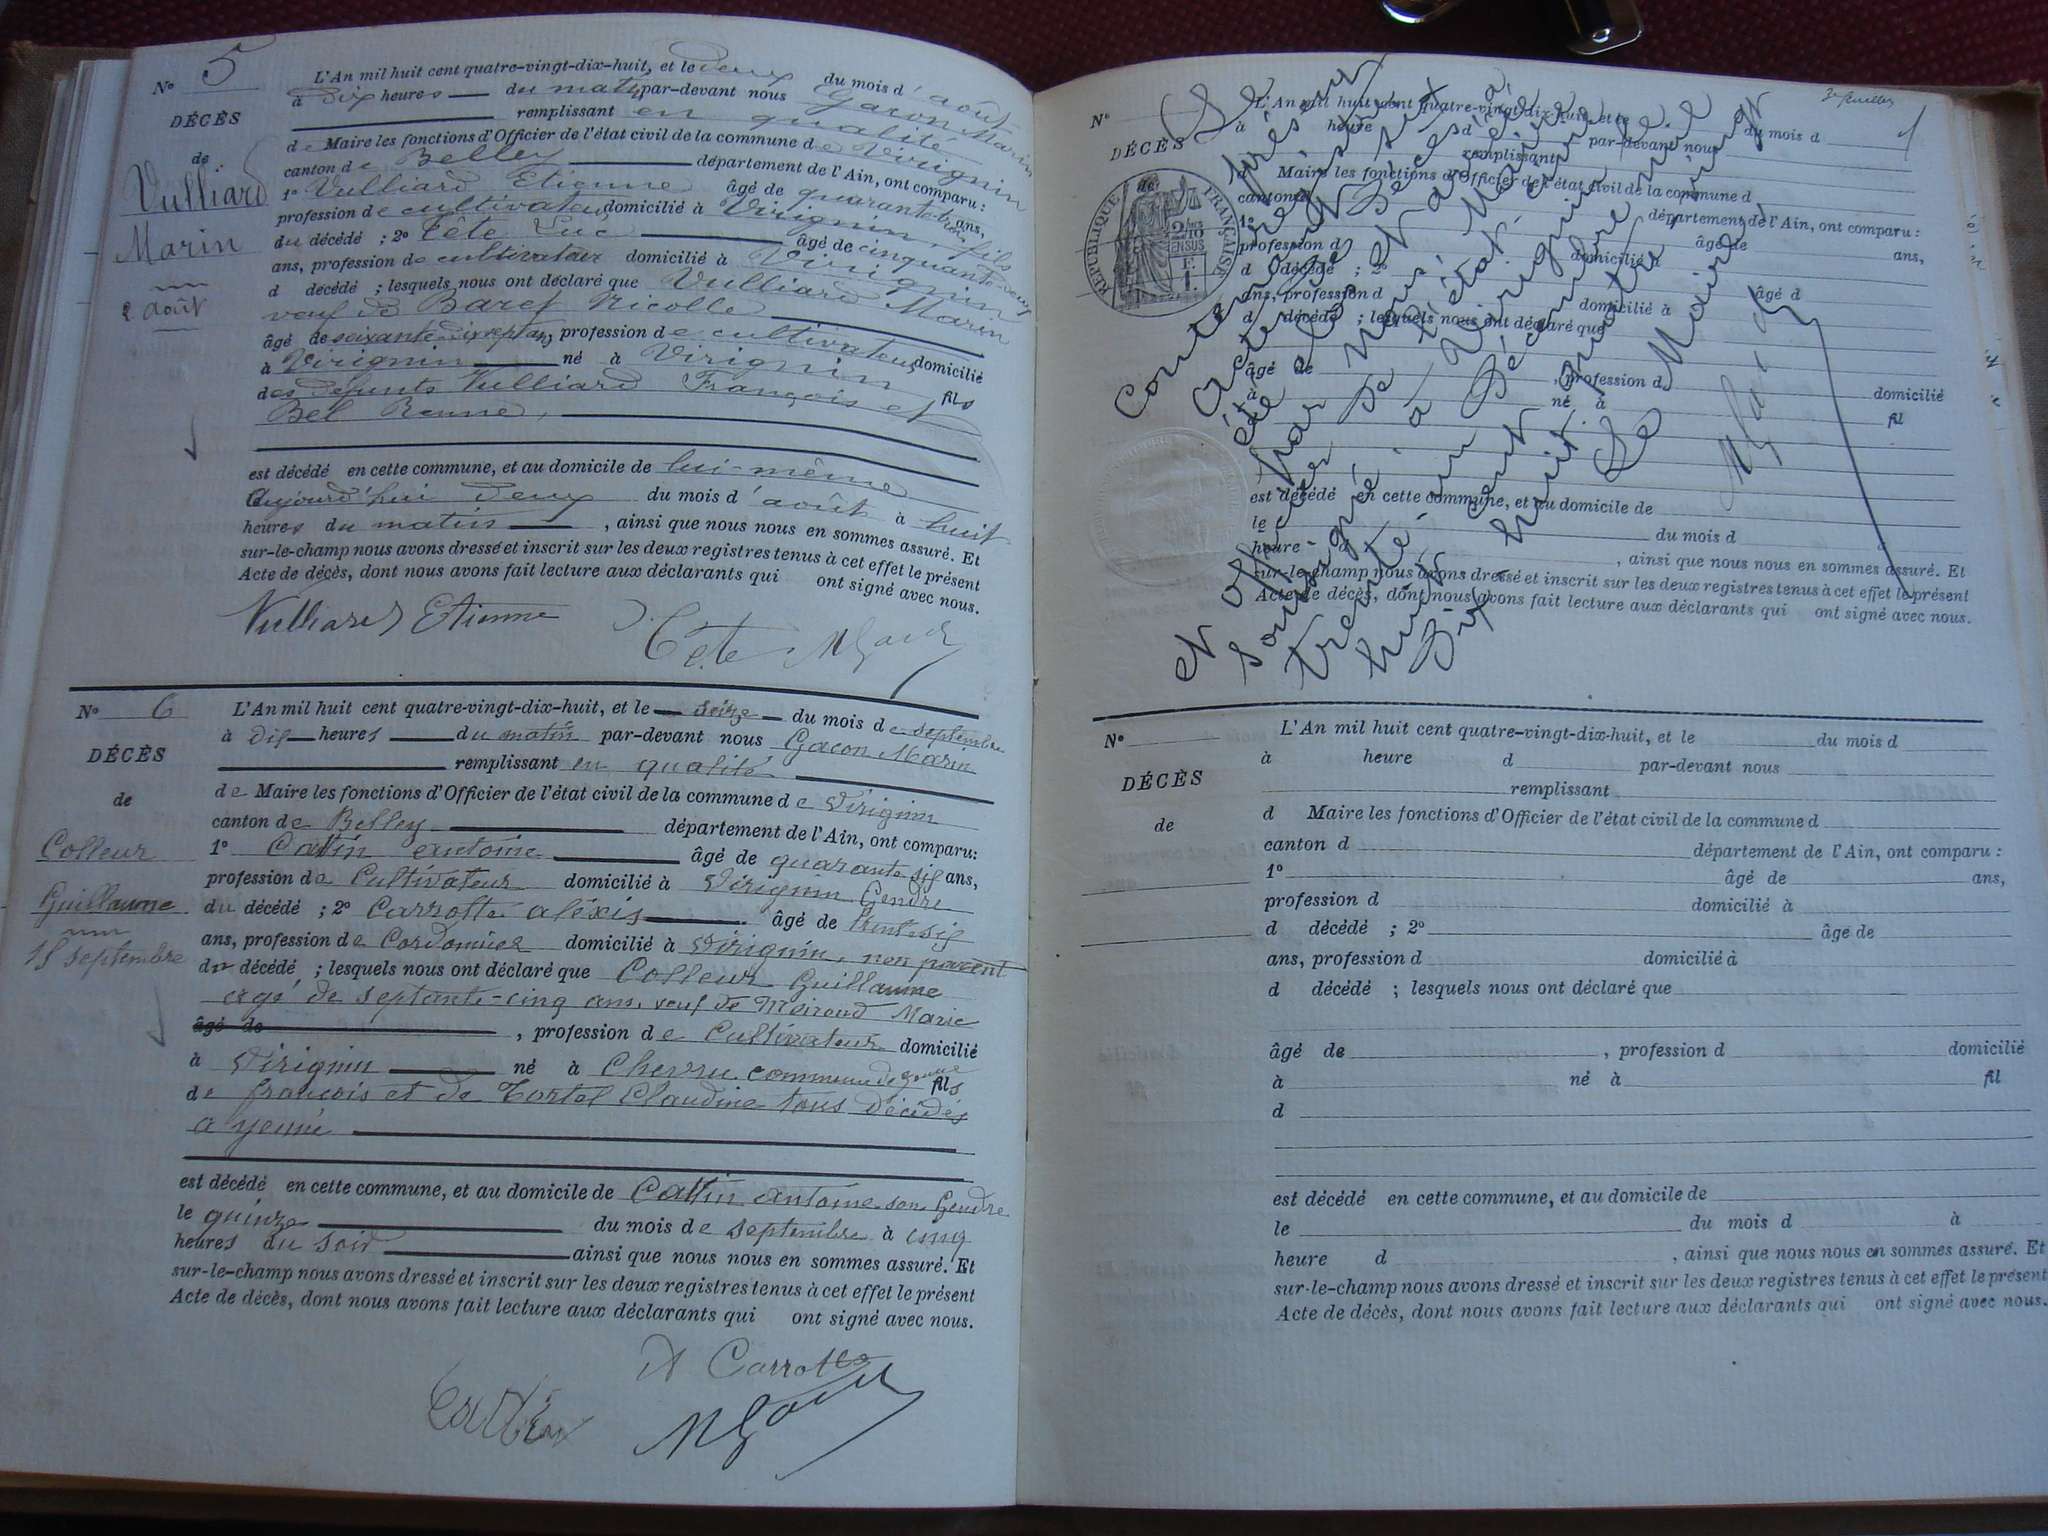 N° 5
DÉCÈS
de
Vulliard
Marin
2 août
L'An mil huit cent quatre-vingt-dix-huit, et le deux du mois d'août
à dix heures du matin par-devant nous Gacon Marin
remplissant en qualité
de Maire les fonctions d'Officier de l'état civil de la commune de Virignin
canton de Belley département de l'Ain, ont comparu :
1° Vulliard Etienne âgé de quarante trois ans,
profession de cultivateur domicilié à Virignin, fils
du décédé ; 2° Tête Luc âgé de cinquante-deux
ans, profession de cultivateur domicilié à Virignin
d décédé ; lesquels nous ont déclaré que Vulliard Marin
veuf de Baret Nicolle
âgé de soixante-dix sept ans, profession de cultivateur, domicilié
à Virignin né à Virignin fils
des défunts Vulliard François et
Bel Benne,
est décédé en cette commune, et au domicile de lui-même
aujourd'hui deux du mois d'août à huit
heures du matin , ainsi que nous nous en sommes assuré. Et
sur-le-champ nous avons dressé et inscrit sur les deux registres tenus à cet effet le présent
Acte de décès, dont nous avons fait lecture aux déclarants qui ont signé avec nous.
Vulliard Etienne
Tête MGacon
N° 6
DÉCÈS
de
Colleur
Guillaume
15 septembre
L'An mil huit cent quatre-vingt-dix-huit, et le seize du mois de septembre
à dix heures du matin par-devant nous Gacon Marin
remplissant en qualité
de Maire les fonctions d'Officier de l'état civil de la commune de Virignin
canton de Belley département de l'Ain, ont comparu :
1° Cattin antoine âgé de quarante six ans,
profession de Cultivateur domicilié à Virignin Gendre
du décédé ; 2° Carrotte aléxis âgé de trente-six
ans, profession de Cordonnier domicilié à Virignin, non parent
du décédé ; lesquels nous ont déclaré que Colleur Guillaume
agé de septante-cinq ans, veuf de Moiroud Marie
âgé de , profession de Cultivateur domicilié
à Virignin né à Chevru commune de yenne fils
de françois et de Tortel Claudine tous décédés
a yenne
est décédé en cette commune, et au domicile de Cattin antoine son Gendre
le quinze du mois de septembre à cinq
heures du soir ainsi que nous nous en sommes assuré. Et
sur-le-champ nous avons dressé et inscrit sur les deux registres tenus à cet effet le présent
Acte de décès, dont nous avons fait lecture aux déclarants qui ont signé avec nous.
A Carrotte
Cattin
MGacon
3e feuillet
N°
DÉCÈS
de
RÉPUBLIQUE FRANÇAISE
L'An mil huit cent quatre-vingt-dix-huit, et le du mois d
à heure d par-devant nous
remplissant
d Maire les fonctions d'Officier de l'état civil de la commune d
canton d département de l'Ain, ont comparu :
1° âgé de ans,
profession d domicilié à
d décédé ; 2° âgé d
ans, profession d domicilié à
d décédé ; lesquels nous ont déclaré que
âgé de , profession d domicilié
à né à fil
est décédé en cette commune, et au domicile de
le du mois d à
heure d , ainsi que nous nous en sommes assuré. Et
sur-le-champ nous avons dressé et inscrit sur les deux registres tenus à cet effet le présent
Acte de décès, dont nous avons fait lecture aux déclarants qui ont signé avec nous.
Le présent registre
Contenant six
actes de Décès a
été clos et arrêté
par Nous, Maire
et officier de l'état-civil
soussigné, à Virignin le
trente-un Décembre mil
huit cent quatre vingt
Dix huit
Le Maire,
MGacon
N°
DÉCÈS
de
L'An mil huit cent quatre-vingt-dix-huit, et le du mois d
à heure d par-devant nous
remplissant
d Maire les fonctions d'Officier de l'état civil de la commune d
canton d département de l'Ain, ont comparu :
1° âgé de ans,
profession d domicilié à
d décédé ; 2° âgé de
ans, profession d domicilié à
d décédé ; lesquels nous ont déclaré que
âgé de , profession d domicilié
à né à fil
d
est décédé en cette commune, et au domicile de
le du mois d à
heure d , ainsi que nous nous en sommes assuré. Et
sur-le-champ nous avons dressé et inscrit sur les deux registres tenus à cet effet le présent
Acte de décès, dont nous avons fait lecture aux déclarants qui ont signé avec nous.